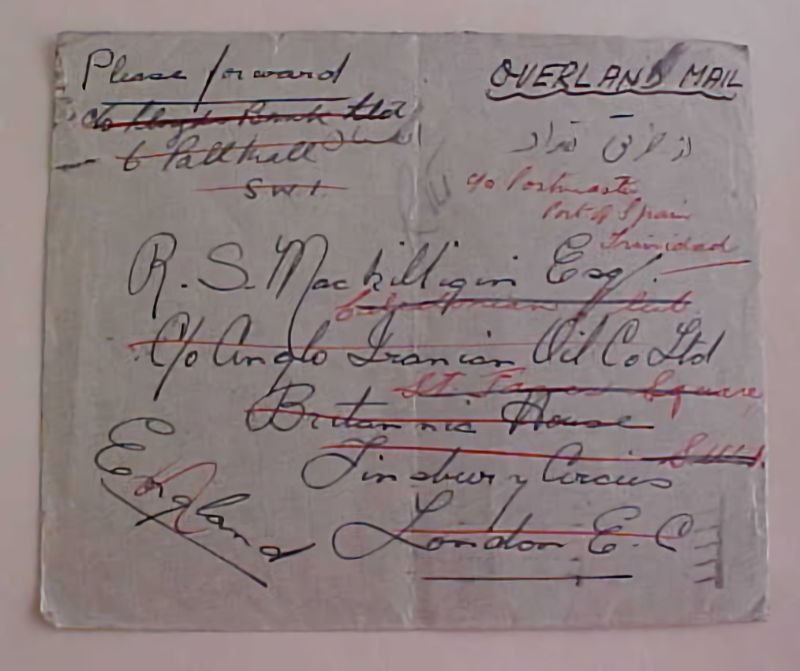 Please forward
OVERLAND MAIL
c/o Lloyds Bank Ltd
6 Pall Mall
S W 1.
از طرق بغداد
c/o Postmaster
Port of Spain
Trinidad
R. S. Mackilligin Esq/.
Caledonian Club
C/o Anglo Iranian Oil Co Ltd
St. James Square
Britannic House
S.W.1.
Finsbury Circus
London E.C
England